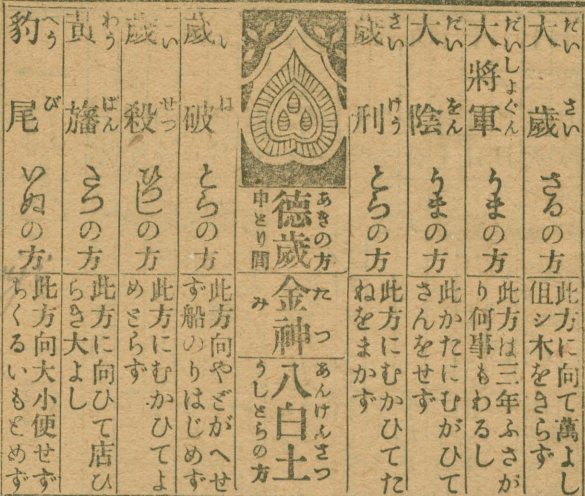 大歳
だいさい
さるの方
此方に向て萬よし
但シ木をきらず
大將軍
だいしょぐん
うまの方
此方は三年ふさが
り何事もわるし
大陰
だいをん
うまの方
此かたにむがひて
さんをせず
歳刑
さいけう
とらの方
此方にむかひてた
ねをまかず
あきの方
徳歳
中とり間
たつ
金神
み
あんけんさつ
八白土
うしとらの方
歳破
いは
とらの方
此方向やどがへせ
ず船のりはじめず
歳殺
いせつ
ひつじの方
此方にむかひてよ
めとらず
黄旛
わうばん
たつの方
此方に向ひて店ひ
らき大よし
豹尾
へうび
いぬの方
此方向大小便せず
ちくるいもとめず